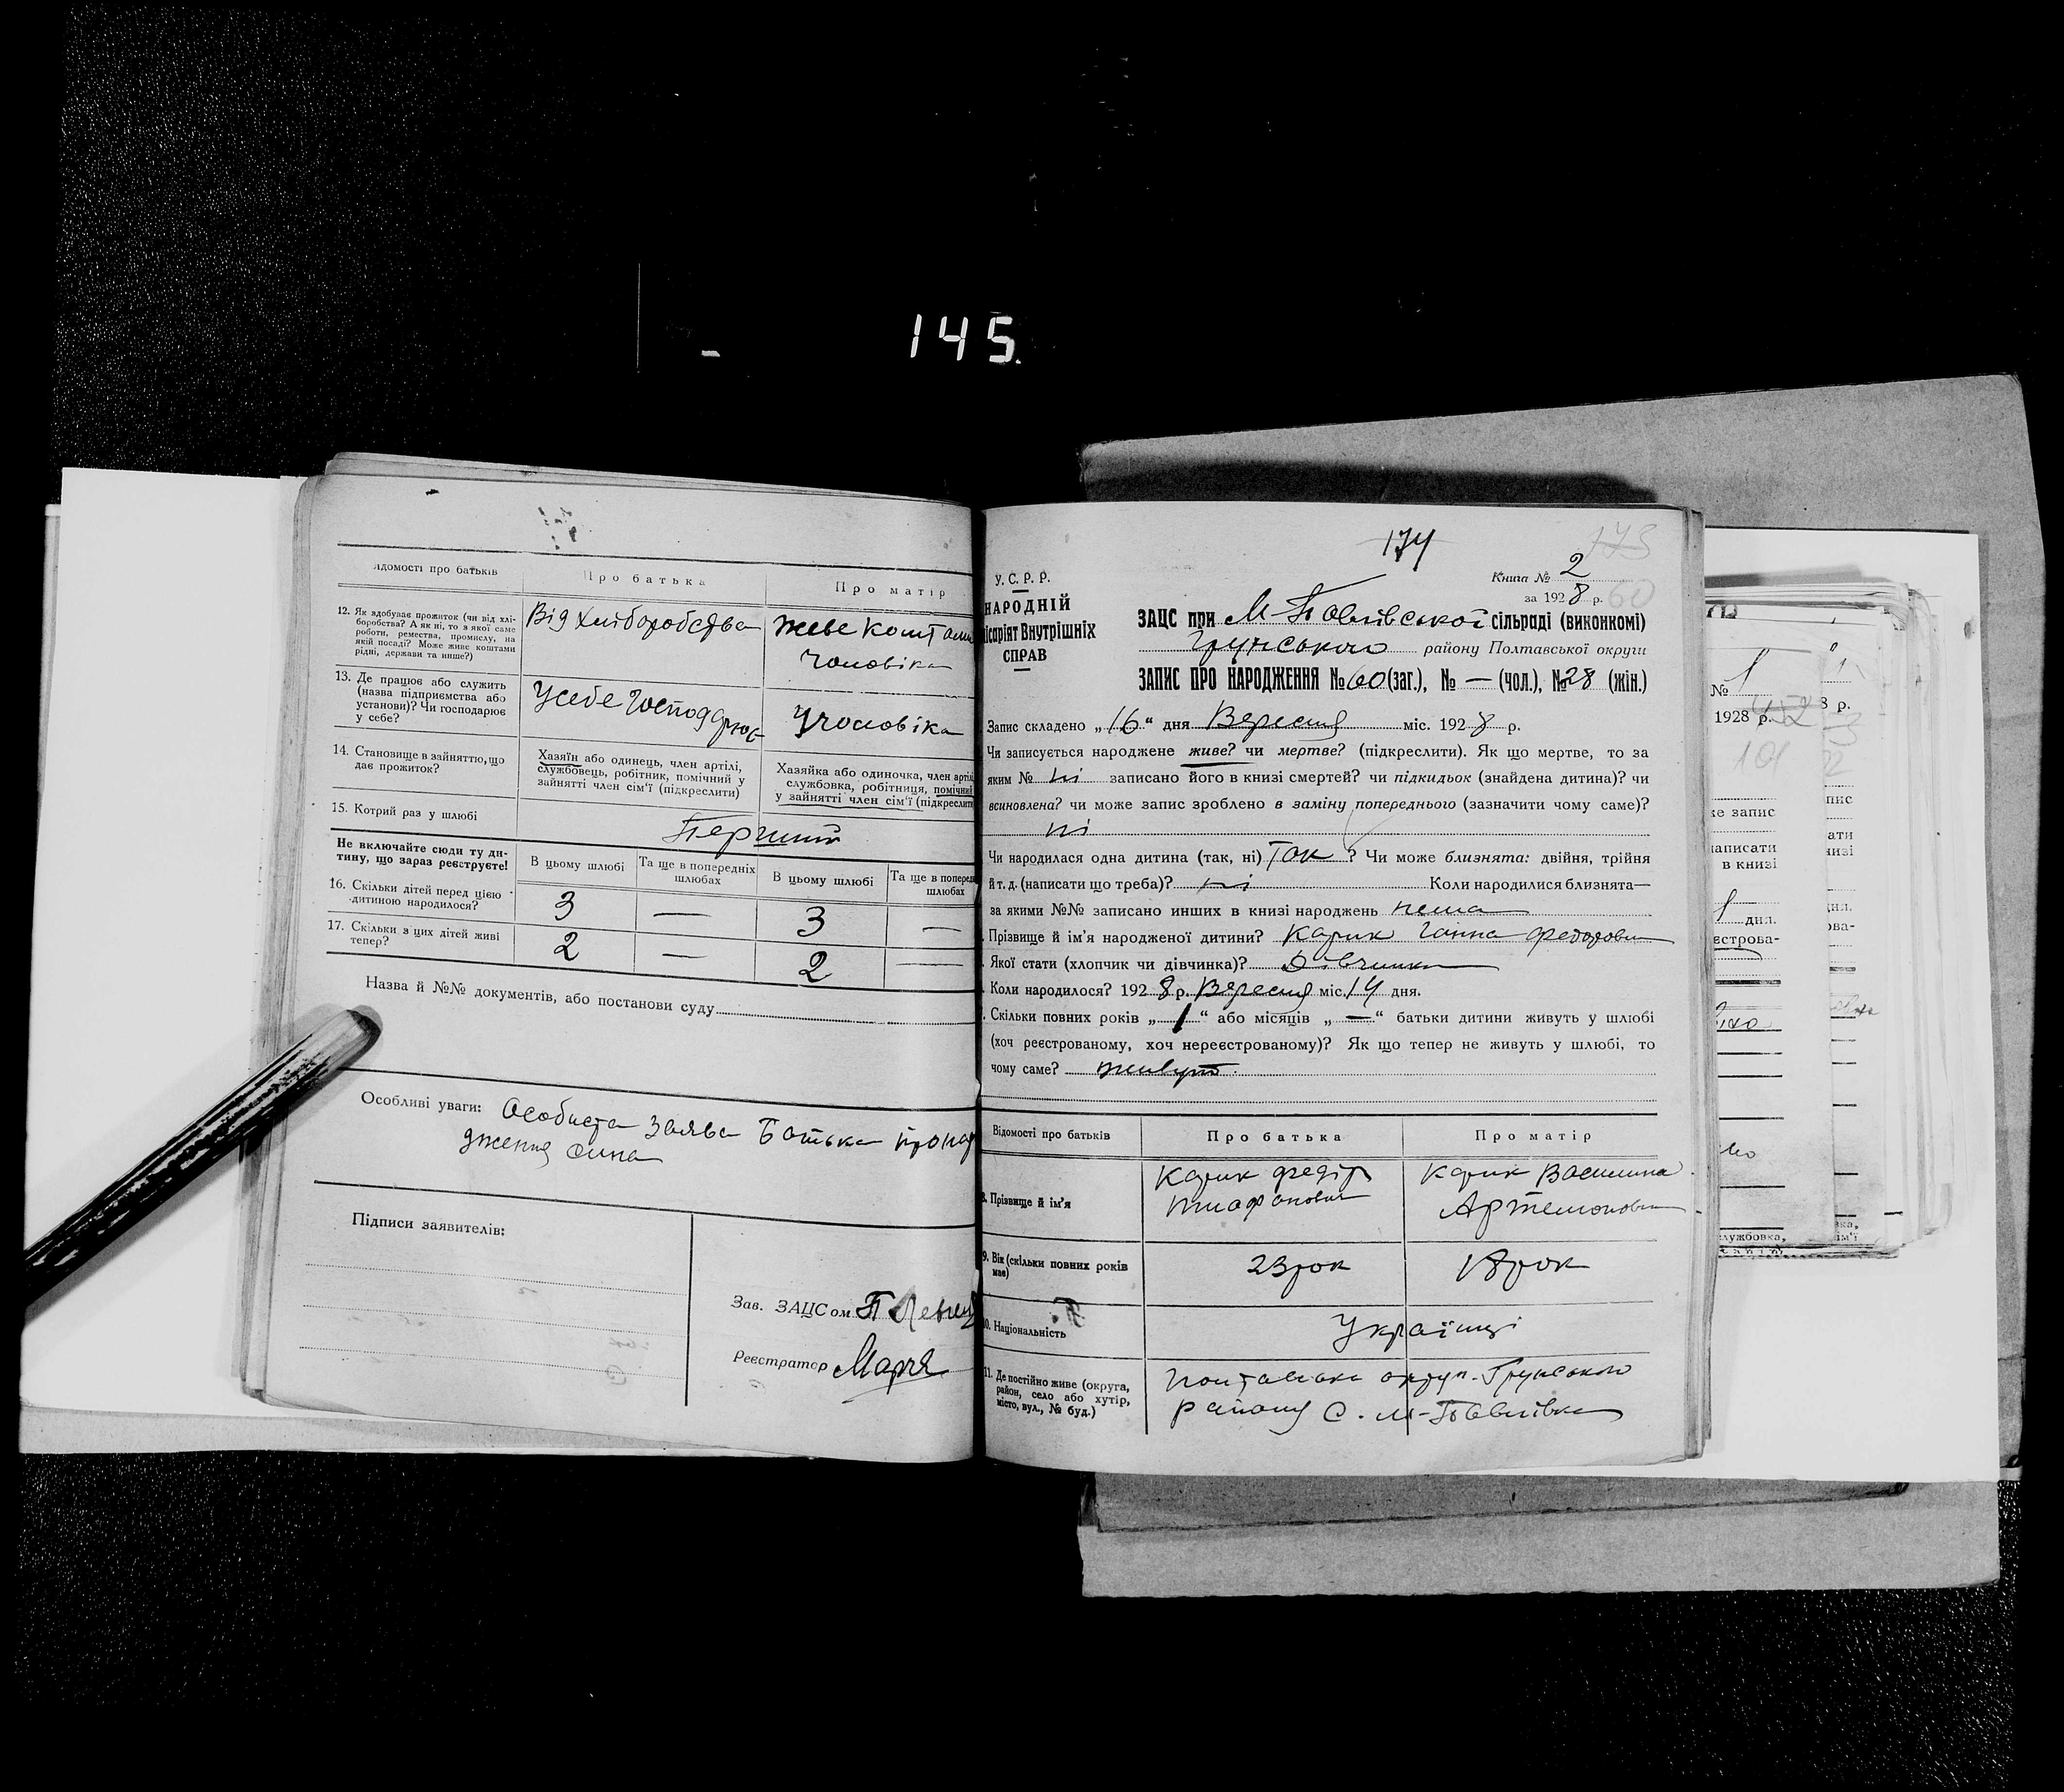 145.
ідомості про батьків
Про батька
Про матір
12. Як здобуває прожиток (чи від хлі-
боробства? А як ні, то з якої саме
роботи, ремества, промислу, на
якій посаді? Може живе коштами
рідні, держави та инше?)
Від хліборобства
живе коштами
чоловіка
13. Де працює або служить
(назва підприємства або
установи)? Чи господарює
у себе?
У себе господарює
У чоловіка
14. Становище в зайняттю, що
дає прожиток?
Хазяїн або одинець, член артілі,
службовець, робітник, помічний у
зайнятті член сім'ї (підкреслити)
Хазяйка або одиночка, член артіл
службовка, робітниця, помічний
у зайнятті член сім'ї (підкреслити
15. Котрий раз у шлюбі
Перший
Не включайте сюди ту ди-
тину, що зараз реєструєте!
В цьому шлюбі
Та ще в попередніх
шлюбах
В цьому шлюбі
Та ще в поперед
шлюбах
16. Скільки дітей перед цією
дитиною народилося?
3 — 3 —
17. Скільки з цих дітей живі
тепер?
2 — 2 —
Назва й №№ документів, або постанови суду
Особливі уваги: Особиста заява Батька про нар
дження сина
Підписи заявителів:
Зав. ЗАЦСом
Реєстратор
174
173
Книга № 2
за 1928 р. 60
У. С. Р. Р.
НАРОДНІЙ
ісаріят Внутрішніх
СПРАВ
ЗАЦС при М-Павлівської сільраді (виконкомі)
Грунського району Полтавської округи
ЗАПИС ПРО НАРОДЖЕННЯ № 60 (заг.), № — (чол.), № 28 (жін.)
Запис складено „16“ дня Вересня міс. 1928 р.
Чи записується народжене живе? чи мертве? (підкреслити). Як що мертве, то за
яким № ні записано його в книзі смертей? чи підкидьок (знайдена дитина)? чи
всиновлена? чи може запис зроблено в заміну попереднього (зазначити чому саме)?
ні
Чи народилася одна дитина (так, ні) Так ? Чи може близнята: двійня, трійня
й т. д. (написати що треба)? ні Коли народилися близнята—
за якими №№ записано инших в книзі народжень нема
Прізвище й ім'я народженої дитини? Карик Ганна Федоровн
Якої стати (хлопчик чи дівчинка)? Дівчинка
Коли народилося? 1928 р. Вересня міс. 14 дня.
Скільки повних років „1“ або місяців „—“ батьки дитини живуть у шлюбі
(хоч реєстрованому, хоч нереєстрованому)? Як що тепер не живуть у шлюбі, то
чому саме? живуть.
Відомості про батьків
Про батька
Про матір
8. Прізвище й ім'я
Карик Федір
Карик Василина
Артемоновн
9. Вік (скільки повних років
має)
23 рок
18 рок
10. Національність
Українці
11. Де постійно живе (округа,
район, село або хутір,
місто, вул., № буд.)
Полтавська округ. Грунського
району С. М-Павлівка
№ 1
1928 р.
8 р.